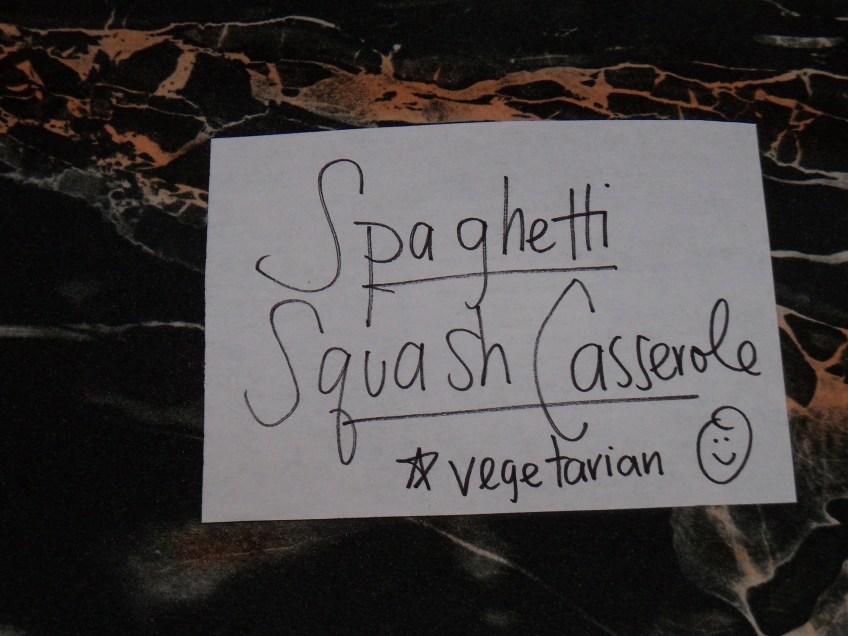 Spaghetti
Squash Casserole
☆ vegetarian